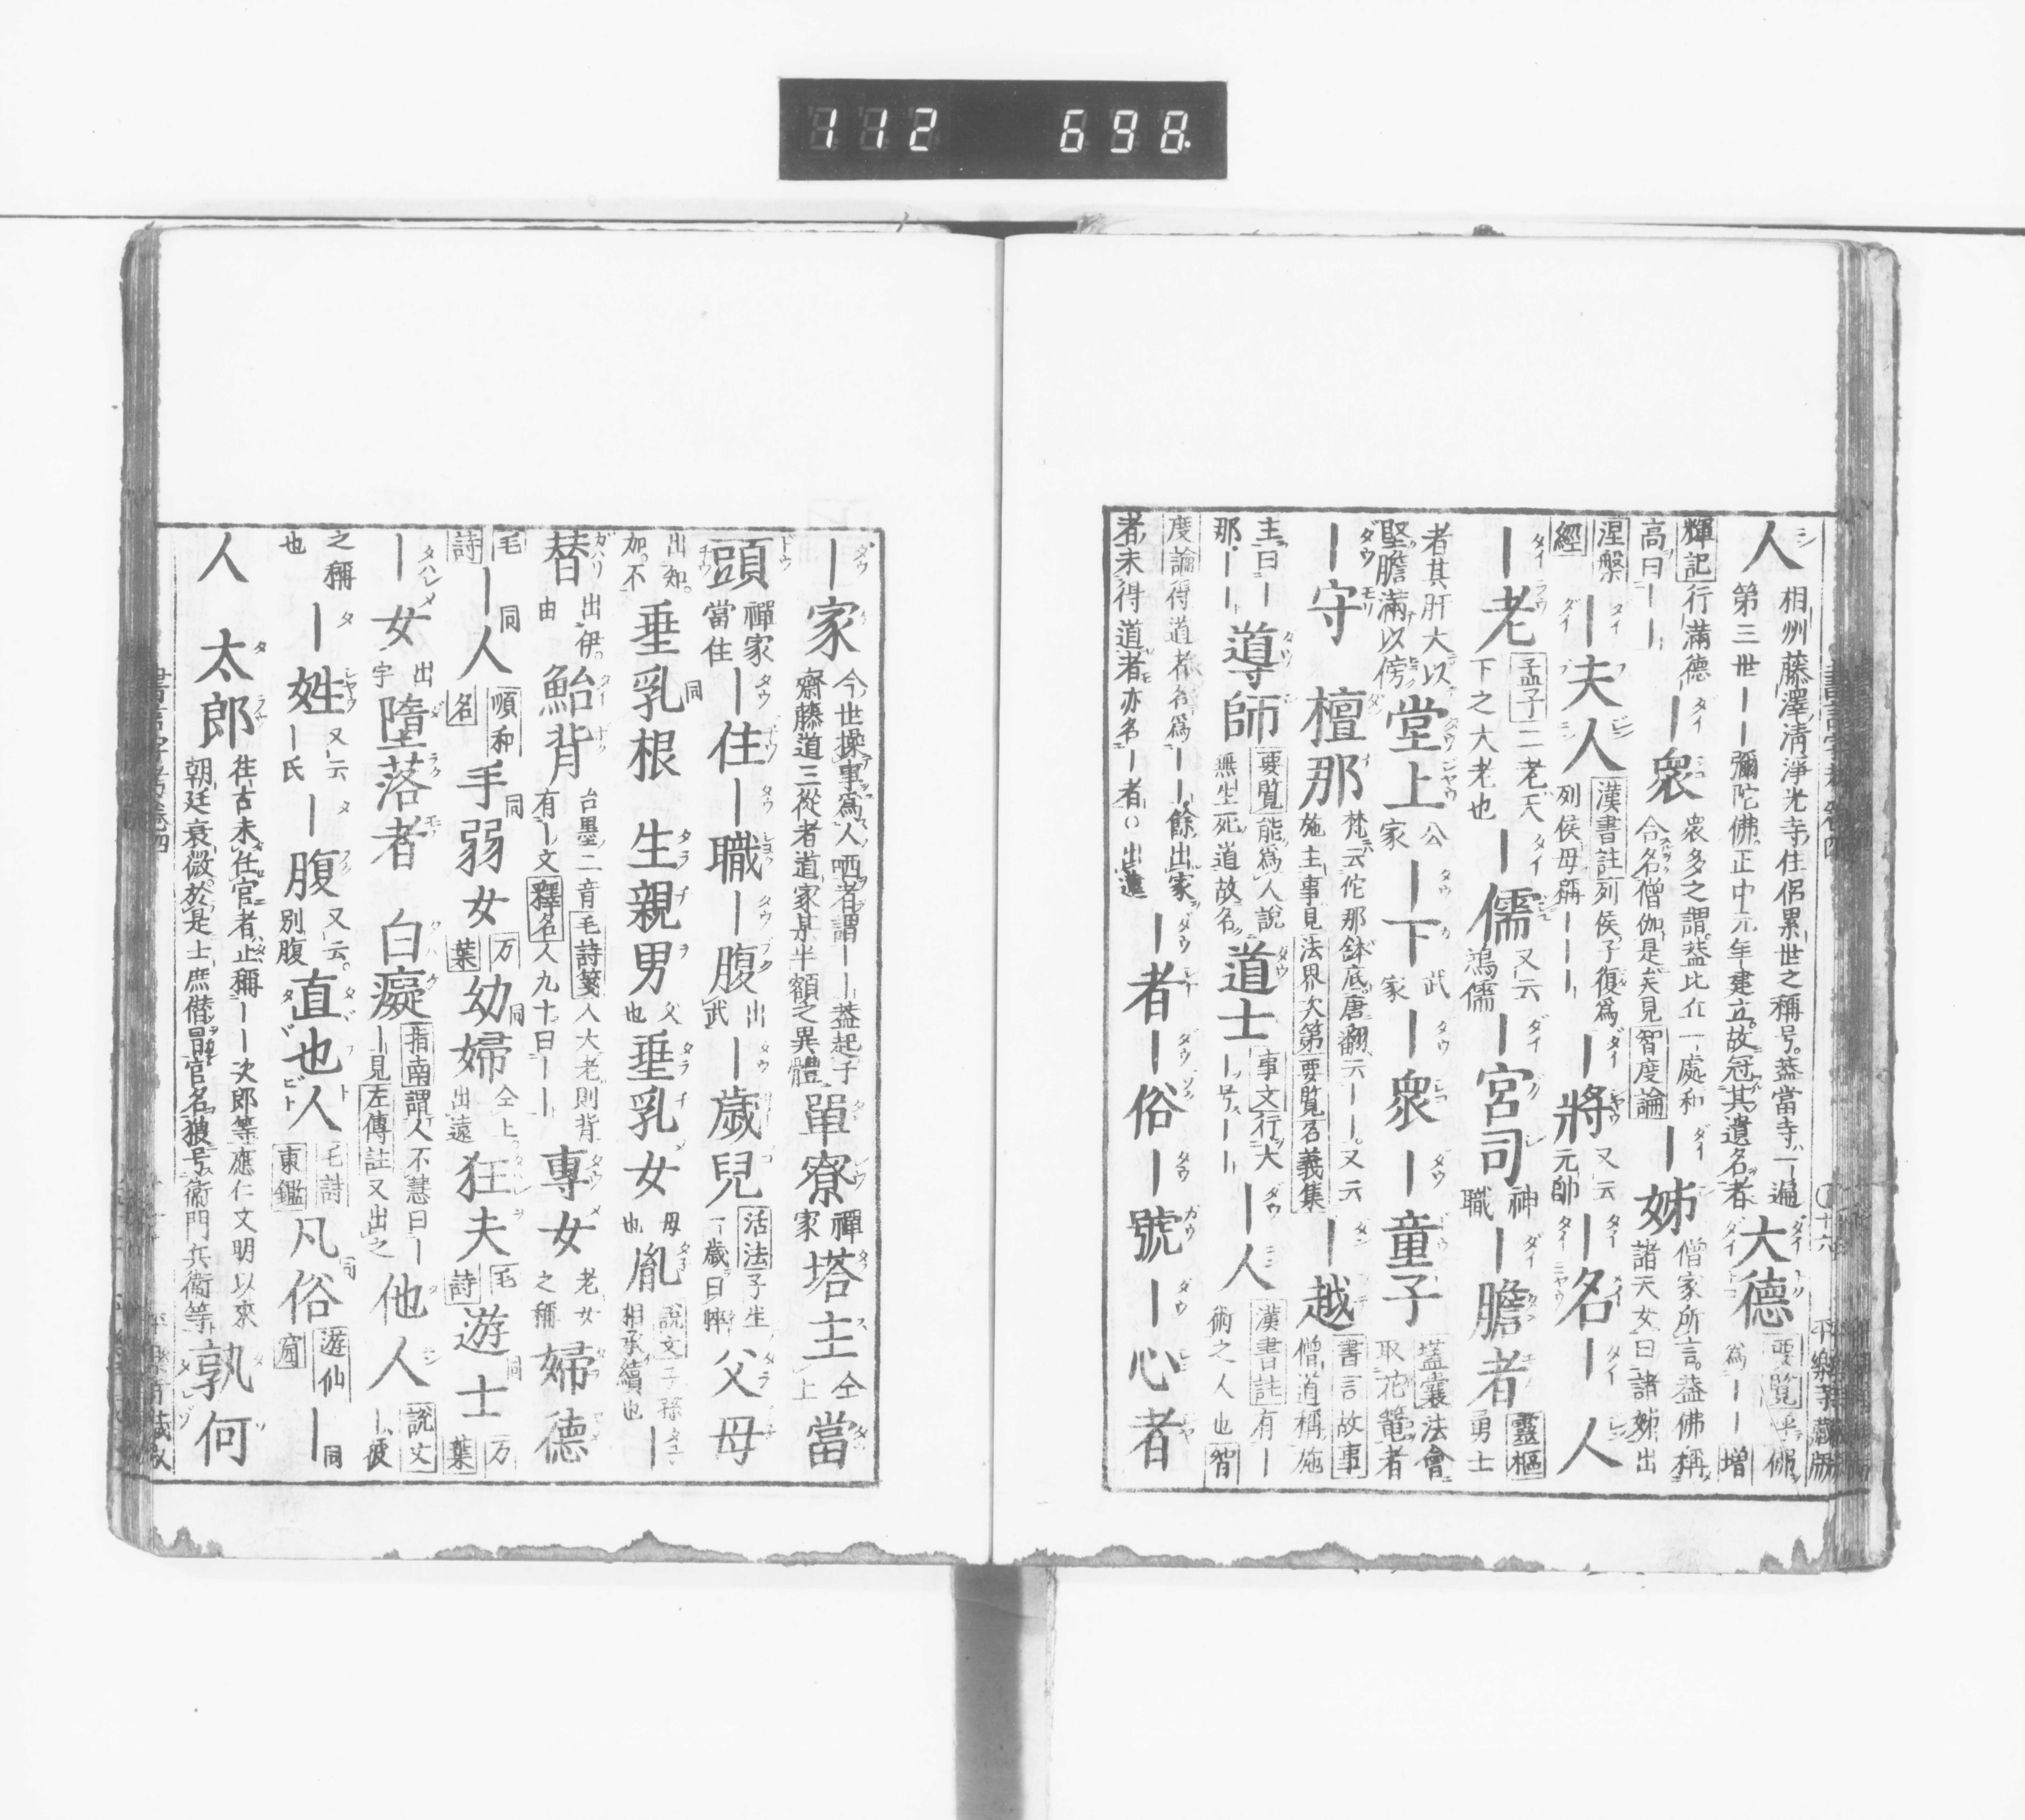 112 698.
人 相州藤澤清淨光寺住侶累世之稱号。蓋當寺一遍
第三世｜｜彌陀佛。正中元年建立。故冠其遺名者 大德 要覽 爲｜｜ 增
輝記 行滿德
高曰｜｜ ｜衆 衆多之謂。蓋比丘一處和
合名僧伽是矣見 智度論 ｜姊 僧家所言。蓋佛稱
諸天女曰諸姊出
涅槃
經 ｜夫人 漢書註 列侯子復爲
列侯母稱｜｜｜ ｜將 又云
元帥 ｜名｜人
｜老 孟子 二老天
下之大老也 ｜儒 又云
鴻儒 ｜宮司 神
職 ｜膽者 靈樞
勇士
者其肝大以
堅膽滿以傍 堂上 公
家 ｜下 武
家 ｜衆｜童子 壒囊 法會
取花籠者
｜守 檀那 梵云佗那鉢底。唐翻云｜｜。又云
施主事見 法界次第 要覽 名義集 ｜越 書言故事
僧道稱施
主曰｜
那｜｜ 導師 要覽 能爲人說
無生死道故名 道士 事文 行大
｜号｜｜ ｜人 漢書註 有｜
術之人也 智
度論 得道者名爲｜｜餘出家
者未得道者亦名｜者 ○出遠 ｜者｜俗｜號｜心者
｜家 今世操事爲人哂者謂｜｜蓋起于
齋藤道三從者道家某半額之異體 單寮 禪
家 塔主 仝
上 當
頭 禪家
當住 ｜住｜職｜腹 出
武 ｜歲兒 活法 子生
一歲曰晬 父母
出知。
加。不 垂乳根 同 生親男 父
也 垂乳女 母
也 胤 說文 子孫
相承續也 ｜
替 出伊。
由 鮐背 台墨二音 毛詩箋 人大老則背
有｜文 釋名 人九十曰｜｜ 專女 老女
之稱 婦德
毛
詩 ｜人 同 順和
名 手弱女 同 万
葉 幼婦 同 仝上
出遠 狂夫 毛
詩 遊士 同 万
葉
｜女 出
宇 墮落者 白癡 指南 謂人不慧曰｜
｜見 左傳註 又出之 他人 說文
｜彼
之稱
也 ｜姓 又云
｜氏 ｜腹 又云。
別腹 直也人 毛詩
東鑑 凡俗 同 遊仙
窟 ｜同
人 太郎 往古未任官者止稱｜｜次郎等應仁文明以來
朝廷衰微於是士庶僭冒官名猥号衞門兵衞等 孰何